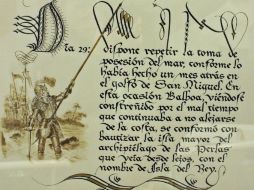 Día 29: Dispone repetir la toma de
posesión del mar, conforme lo
había hecho un mes atrás en
el golfo de San Miguel. En
esta ocasión Balboa, viéndose
constreñido por el mal tiempo
que continuaba a no alejarse
de la costa, se conformó con
bautizar la isla mayor del
archipiélago de las Perlas
que veía desde lejos, con el
nombre de Isla del Rey.